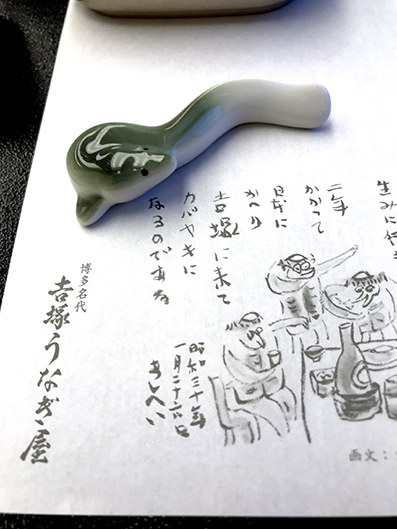 生みに行
二年
かかって
日本に
かへり
吉塚に来て
カバヤキに
なるのである
昭和三十年
一月二十六日
あしへい
画文：
博多名代
吉塚うなぎ屋